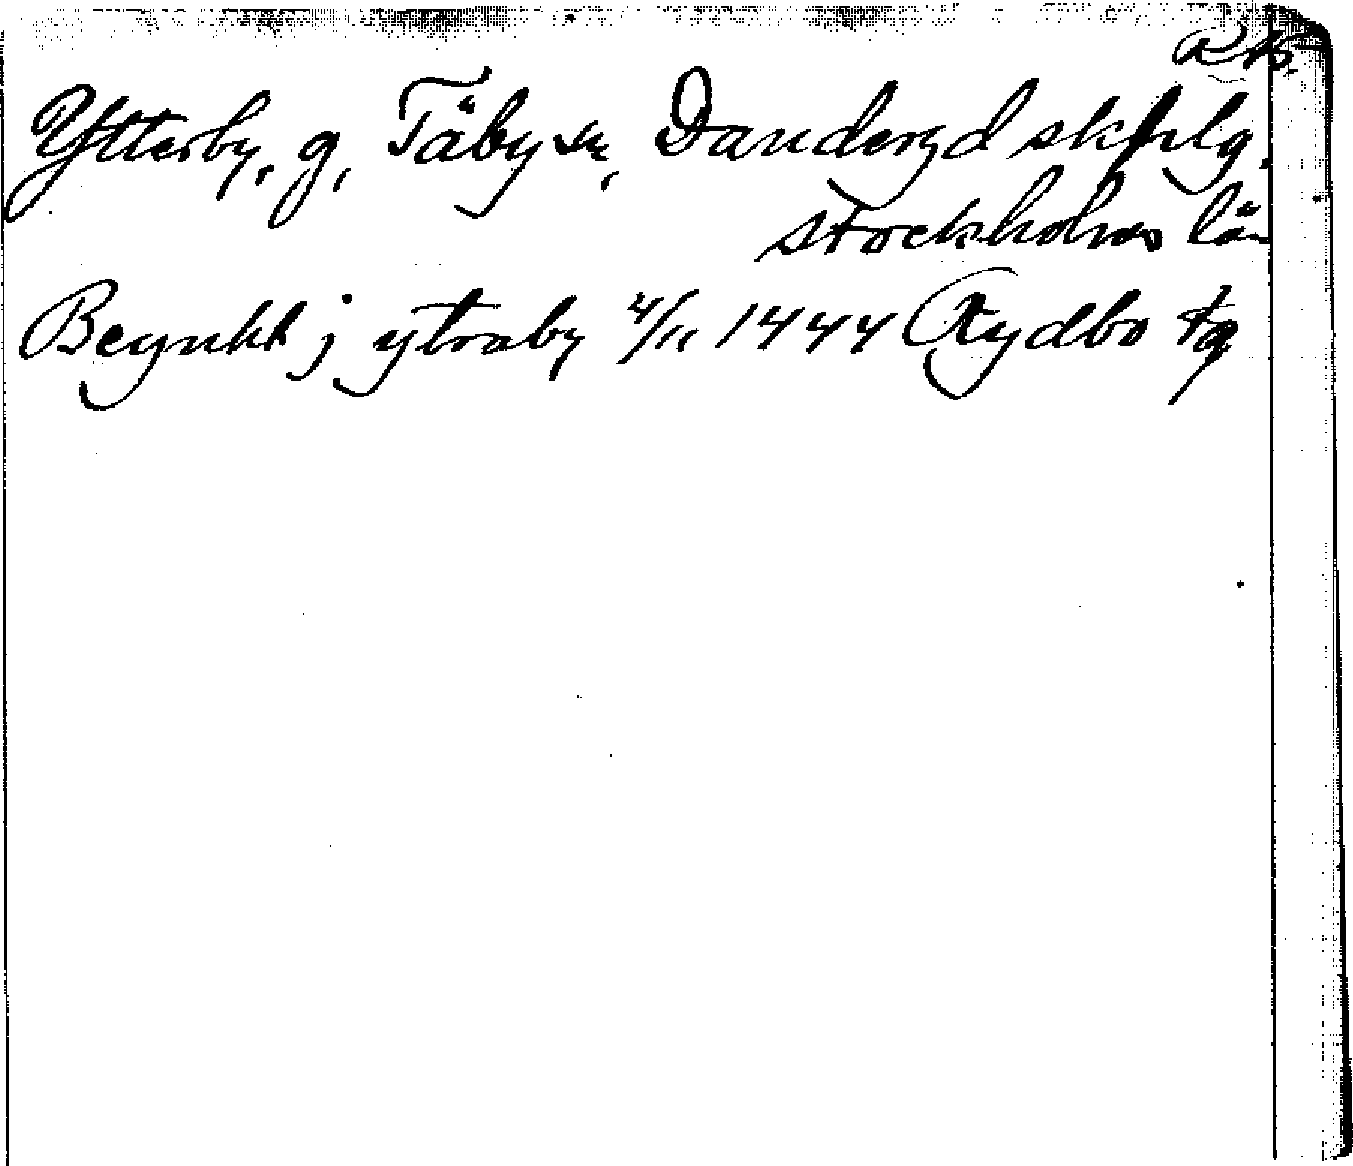 Ytterby, g, Täby sn, Danderyd skplg.
Stockholms län
Beynkt j ytraby 4/11 1444 Rydbo tg